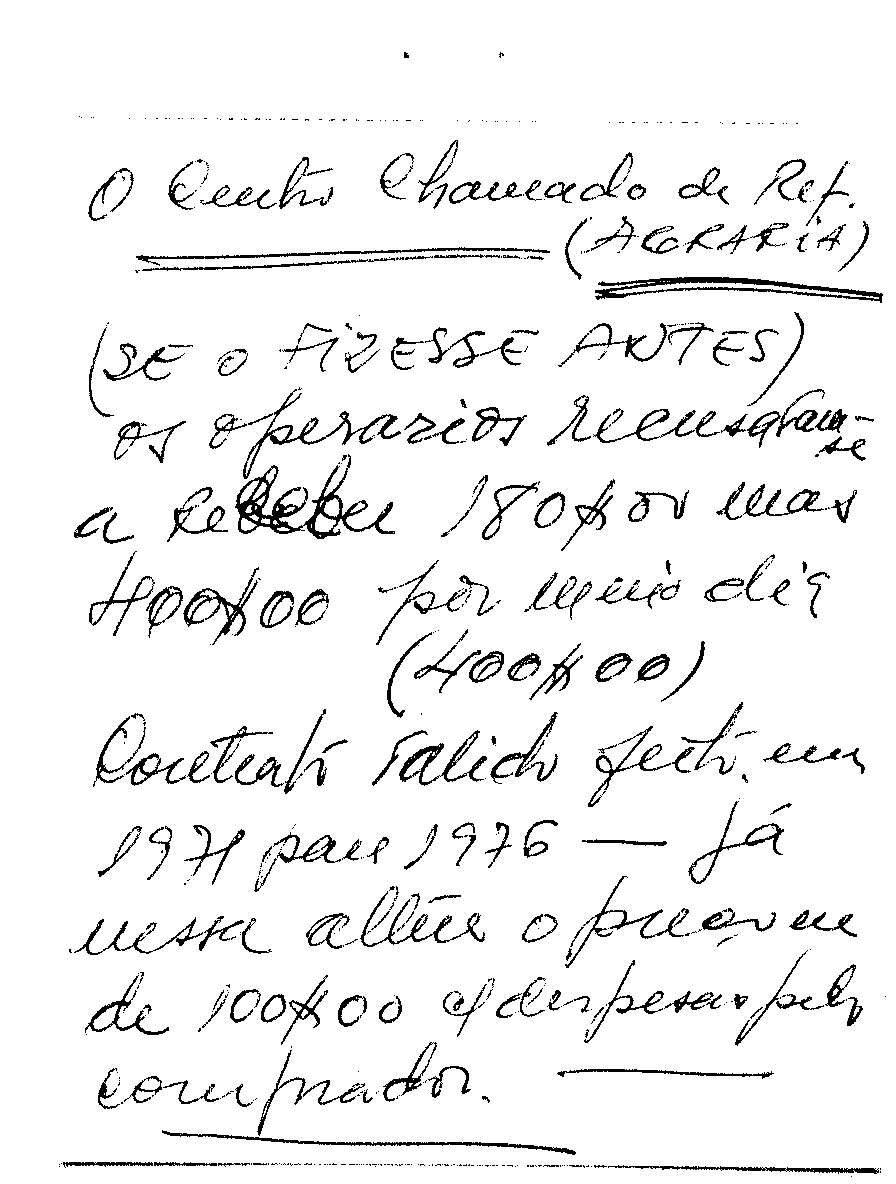 O Centro Chamado de Ref.
(AGRARIA)
(SE O FIZESSE ANTES)
os operarios recusaram-se
a receber 180$00 mas
400$00 por meio dia
(400$00)
Contrato valido feito em
1971 para 1976 — Já
nessa altura o preço era
de 100$00 e/ despesas pelo
comprador.